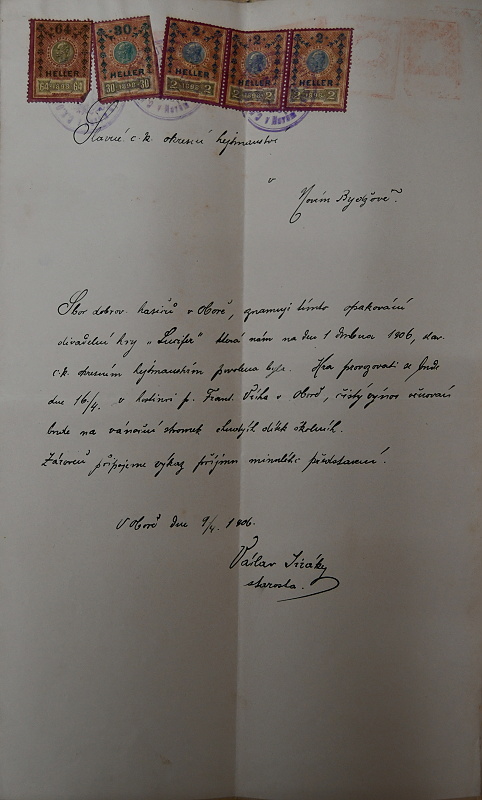 64 30 2 2 2
HELLER HELLER HELLER HELLER HELLER
64 1898 64 30 1898 30 2 1898 2 2 1898 2 2 1898 2
Slavné c.k. okresní hejtmanství
v
Novém Bydžově.
Sbor dobrov. hasičů v Oboře, oznamuji tímto opakování
divadelní hry „Lucifer" která nám na den 1 dubna 1906, slav.
c.k. okresním hejtmanstvím povolena byla. Hra provozovati se bude
dne 16/4. v hostinci p. Frant. v Oboře, čistý výnos věnován
bude na vánoční stromek chudých dítek školních.
Zároveň připojeme výkaz příjmu minulého představení.
V Oboře dne 9/4. 1906.
Václav Jirásky
starosta.